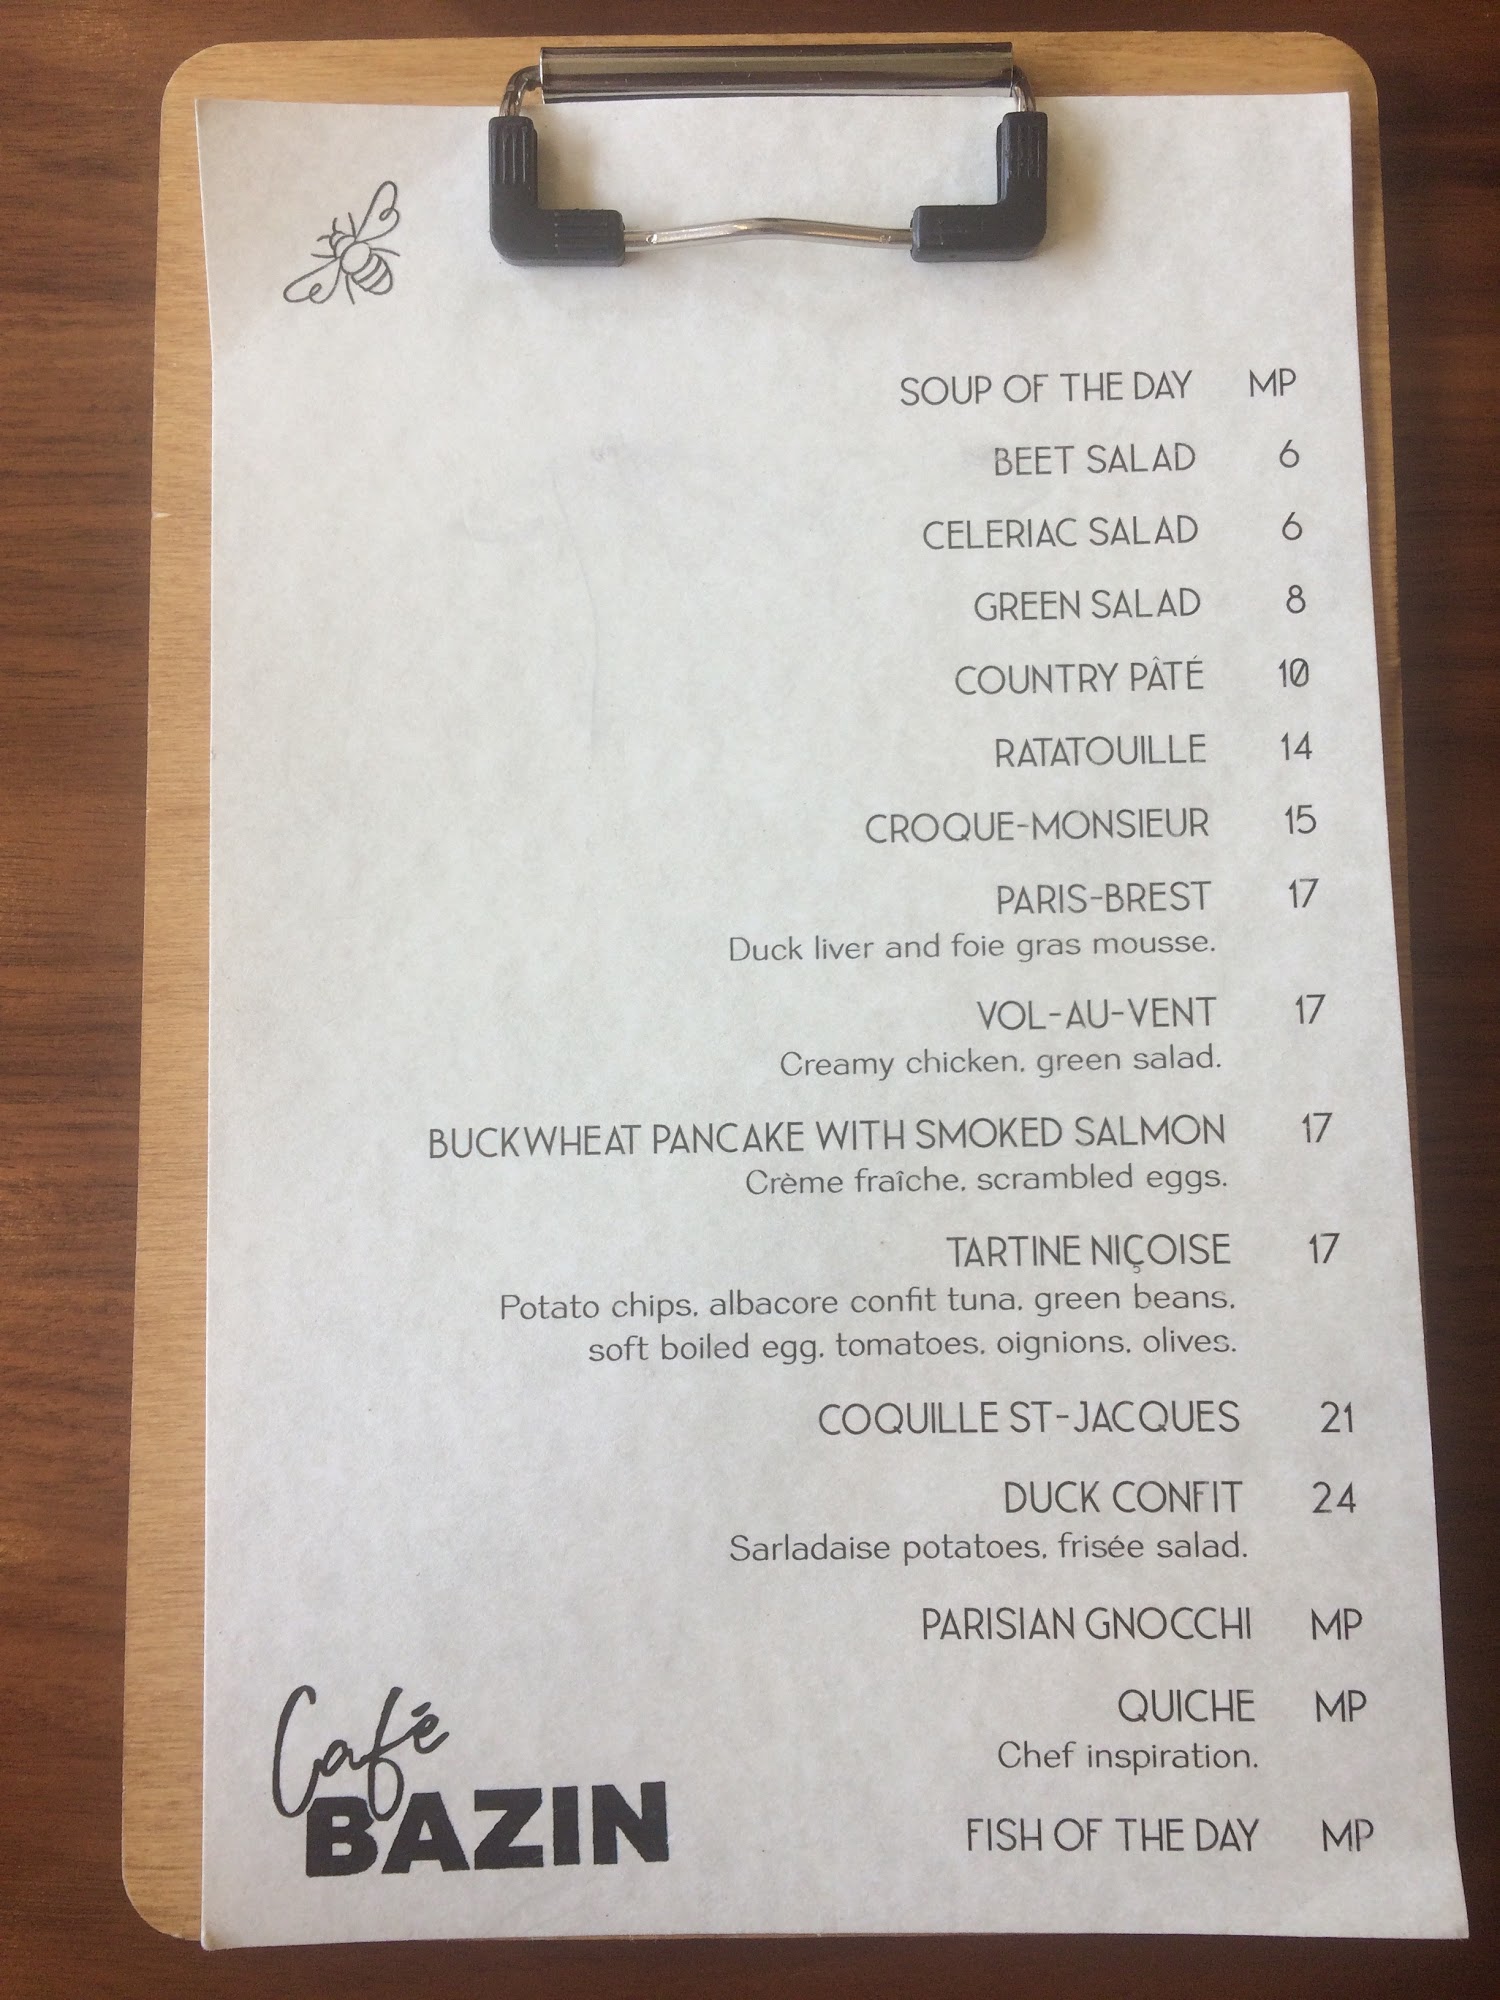 SOUP OF THE DAY MP
BEET SALAD 6
CELERIAC SALAD 6
GREEN SALAD 8
COUNTRY PÂTÉ 10
RATATOUILLE 14
CROQUE-MONSIEUR 15
PARIS-BREST 17
Duck liver and foie gras mousse.
VOL-AU-VENT 17
Creamy chicken, green salad.
BUCKWHEAT PANCAKE WITH SMOKED SALMON 17
Crème fraîche, scrambled eggs.
TARTINE NIÇOISE 17
Potato chips, albacore confit tuna, green beans,
soft boiled egg, tomatoes, oignions, olives.
COQUILLE ST-JACQUES 21
DUCK CONFIT 24
Sarladaise potatoes, frisée salad.
PARISIAN GNOCCHI MP
QUICHE MP
Chef inspiration.
FISH OF THE DAY MP
Café
BAZIN